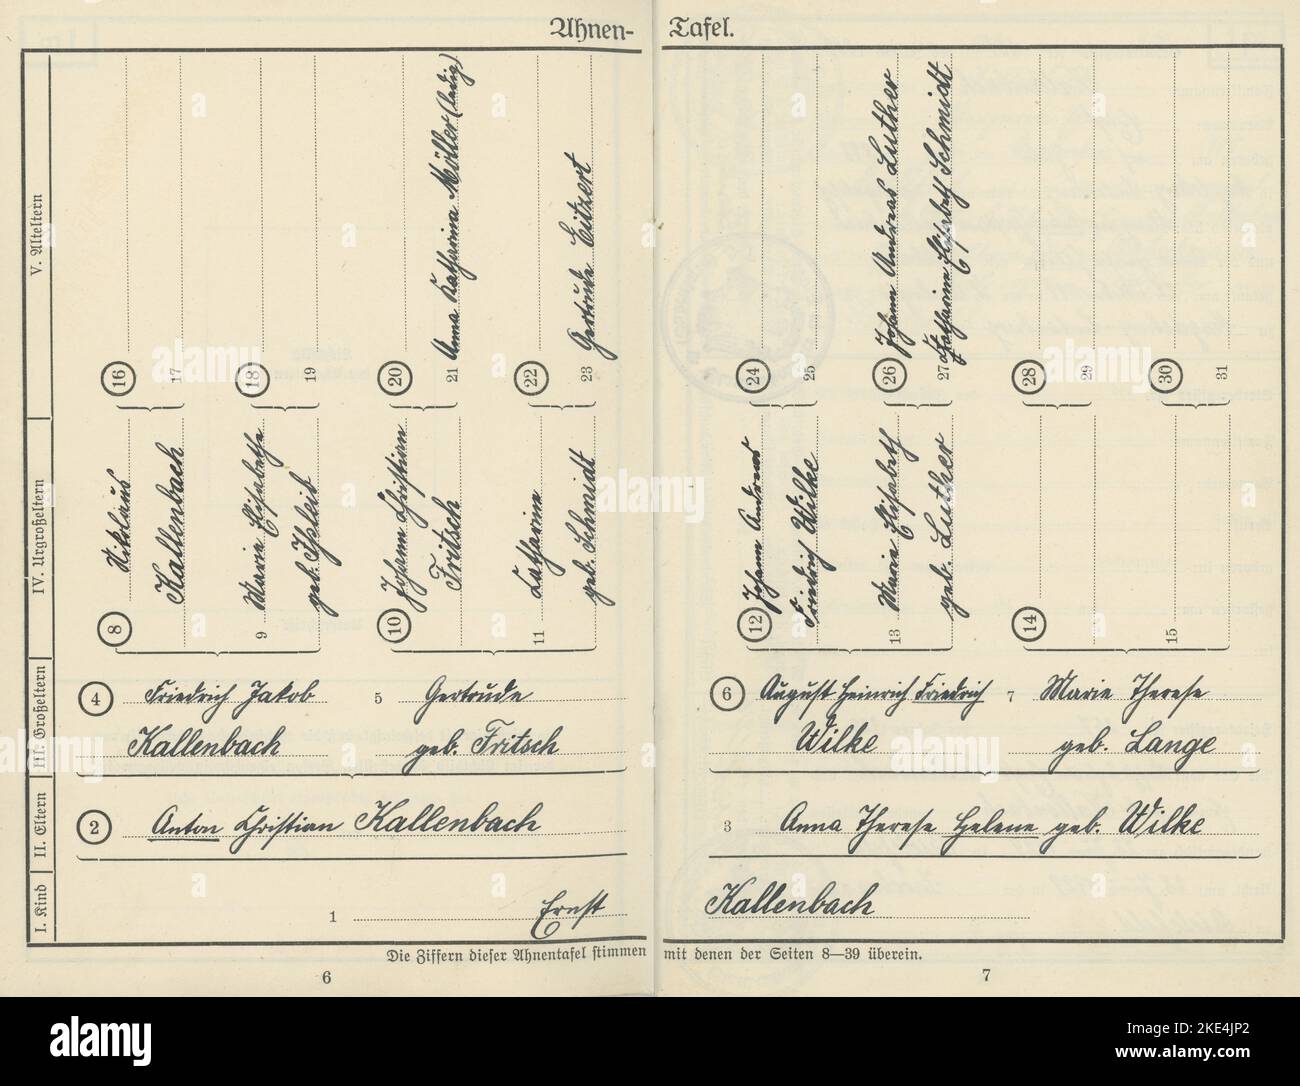 Ahnen- Tafel.
V. Alteltern
16
17
18
19
20
21 Anna Katharina Möller (ledig)
22
23 Gertrude Eitzert
24
25
26 Johann Andreas Luther
27 Katharine Elisabeth Schmidt
28
29
30
31
IV. Urgroßeltern
8 Niklaus
Kallenbach
9 Marie Elisabethe
geb. Ißleib
10 Johann Christian
Fritsch
11 Katharine
geb. Schmidt
12 Johann Andreas
Friedrich Wilke
13 Marie Elisabeth
geb. Luther
14
15
III. Großeltern
4 Friedrich Jakob
Kallenbach
5 Gertrude
geb. Fritsch
6 August Heinrich Friedrich
Wilke
7 Marie Therese
geb. Lange
II. Eltern
2 Anton Christian Kallenbach
3 Anna Therese Helene geb. Wilke
I. Kind
1 Ernst Kallenbach
Die Ziffern dieser Ahnentafel stimmen mit denen der Seiten 8—39 überein.
6
7
alamy
Image ID: 2KE4JP2
www.alamy.com